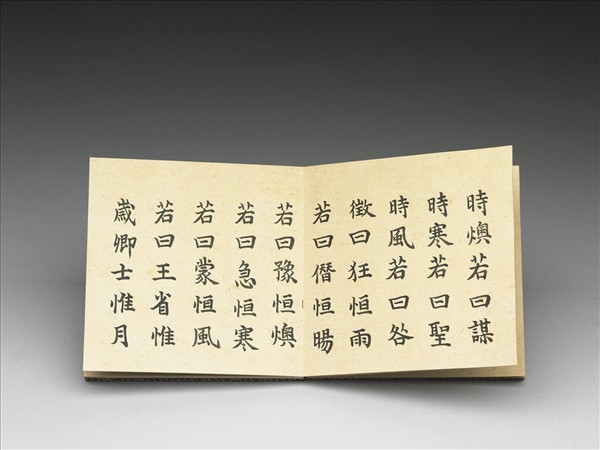 時燠若曰謀
時寒若曰聖
時風若曰咎
徵曰狂恒雨
若曰僭恒暘
若曰豫恒燠
若曰急恒寒
若曰蒙恒風
若曰王省惟
歲卿士惟月